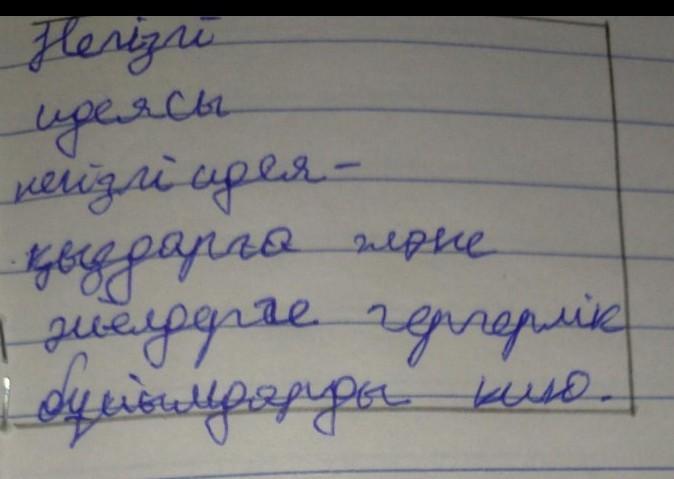 Негізгі
идеясы
негізгі идея –
қыздарға және
әйелдерге зергерлік
бұйымдарды кию.